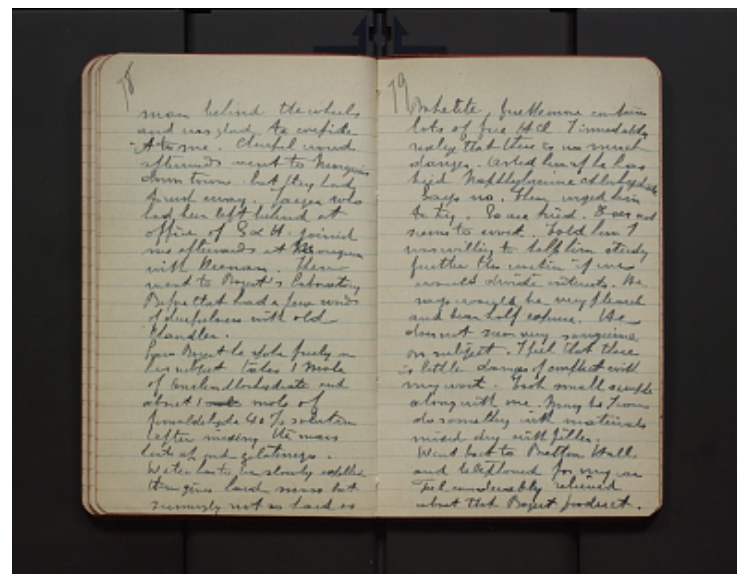 78
man behind the wheels
and was glad to confide
it to me. Cheerful word
afterwards went to
down town. but they had
moved away. who
had been left behind at
office of G & H. joined
me afterwards at
with Neenan. Then
went to Bogert's Laboratory
Before that had a few words
of cheerfulness with old
Chandler.
Bogert he spoke freely on
his subject takes 1 mole
of and
about 1 mole of
formaldehyde 40% solution
after mixing the mass
heats up and gelatinizes.
Water has to be slowly expelled
then gives hard mass but
seemingly not as hard as
79
Bakelite, furthermore contains
lots of free HCl I immediately
realize that there is no much
danger. Asked him if he has
tried Naphthylamine chlorhydrate
Says no. Then urged him
to try. So we tried. Does not
seem to work. Told him I
was willing to help him study
further the question if we
would divide interests. He
says would be very pleased
and bear half expense. He
does not seem very sanguine
on subject. I feel that there
is little danger of conflict with
my work. Took small sample
along with me. May be I can
do something with materials
mixed dry with filler.
Went back to Bretton Hall
and telephoned for my
Feel considerably relieved
about that Bogert product.